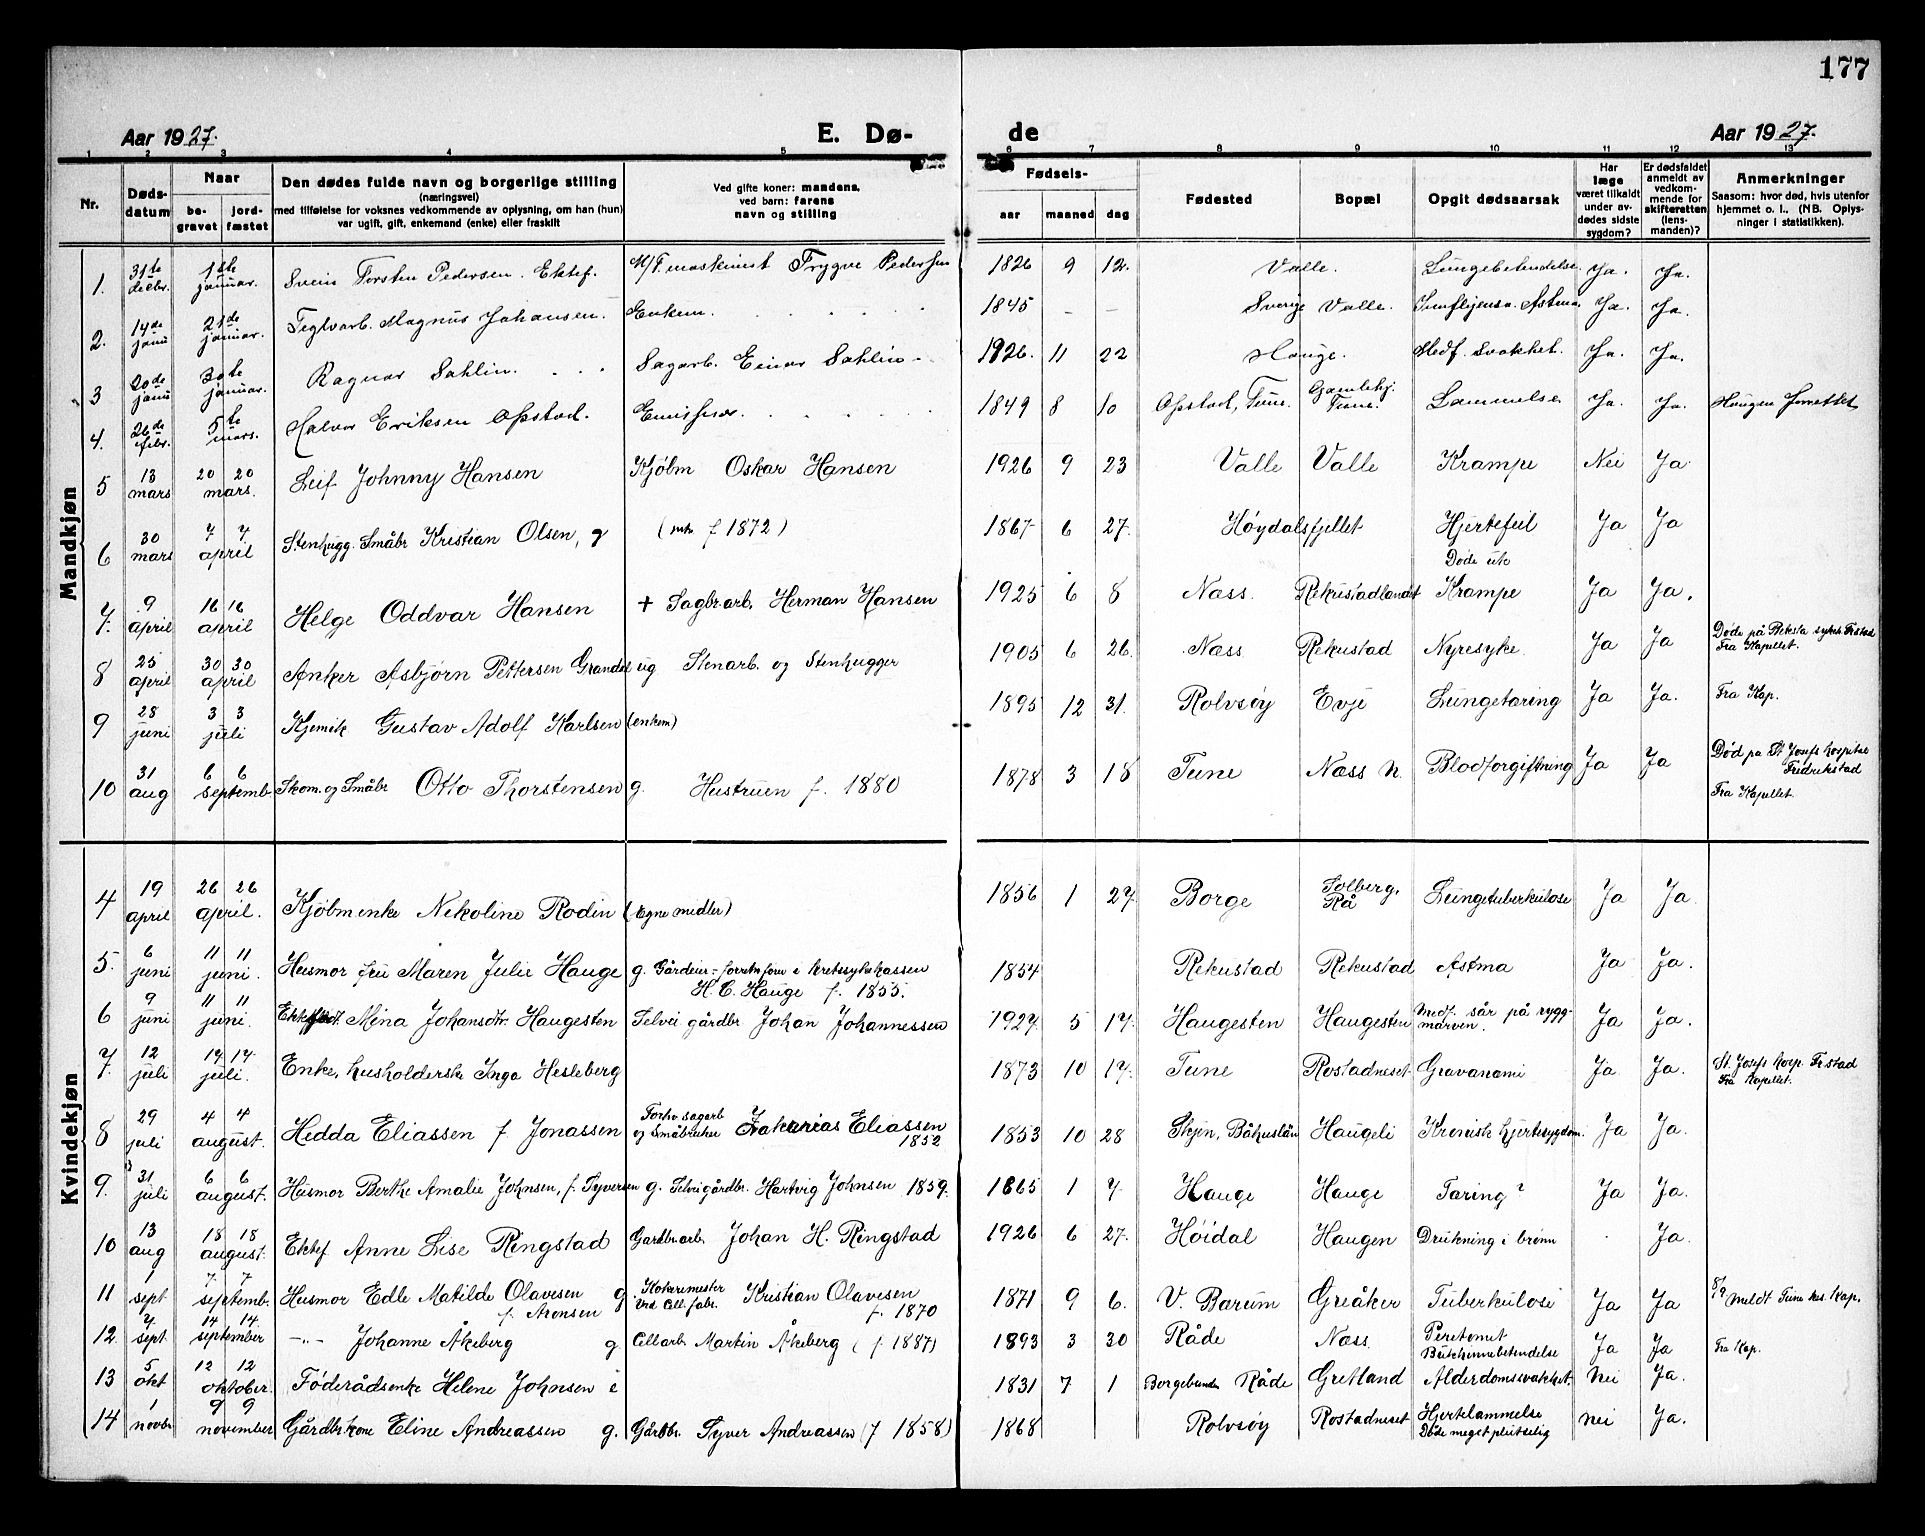 177
Aar 1927. E. Dø- de Aar 1927.
1 2 3 4 5 6 7 8 9 10 11 12 13
Nr. Døds-datum Naar be-gravet jord-fæstet Den dødes fulde navn og borgerlige stilling (næringsvei) med tilføielse for voksnes vedkommende av oplysning, om han (hun) var ugift, gift, enkemand (enke) eller fraskilt Ved gifte koner: mandens, ved barn: farens navn og stilling Fødsels- aar maaned dag Fødested Bopæl Opgit dødsaarsak Har læge været tilkaldt under av-dødes sidste sygdom? Er dødsfaldet anmeldt av vedkom-mende for skifteretten (lens-manden)? Anmerkninger Saasom: hvor død, hvis utenfor hjemmet o. l., (NB. Oplys-ninger i statistikken).
Mandkjøn
1. 31te decbr. 1ste januar. Svein Torsten Pedersen. Ektef. Trygve Pedersen 1826 9 12. Valle. Lungebetendelse. Ja. Ja.
2. 14de janu 21de januar. Teglvarb. Magnus Johansen. Enkem. 1845 – – Sverige Valle. Astma Ja. Ja.
3 20de janu 30te januar. Ragnar Sahlin. Sagarb. Einar Sahlin 1926. 11 22 Hauge. Medf. Svakhet. Ja. Ja.
4. 26de febr. 5te mars. Halvor Eriksen Opstad. 1849 8 10 Opstad, Tune. Gamlehj. Tune. Lammelse Ja. Ja. Haugen forrettet
5 13 mars 20 20 mars. Leif Johnny Hansen Kjøbm Oskar Hansen 1926 9 23 Valle Valle Krampe Nei Ja
6 30 mars 7 7 april Stenhugg. Småbr Kristian Olsen, g ( f 1872) 1867 6 27. Høydalsfjellet Hjertefeil Døde ute Ja Ja
7. 9 april 16 16 april Helge Oddvar Hansen + Sagbr.arb. Herman Hansen 1925 6 8 Næss. Rekustadlandet Krampe Ja Ja.
8 25 april 30 30 april Anker Asbjørn Pettersen Grandal ug Stenarb. og Stenhugger 1905 6 26. Næss Rekustad Nyresyke. Ja Ja Døde på Reksta sykeh Frstad Fra Kapellet.
9 28 juni 3 3 juli Kjemik Gustav Adolf Karlsen (enkem) 1895 12 31. Rolvsøy Evje Lungetæring Ja Ja. Fra Kap.
10 31 aug 6 6 septemb. Skom. og Småbr Otto Thorstensen g. Hustruen f. 1880 1878 3 18 Tune Næss n. Blodforgiftning Ja Ja Død på St Josefs hospital Fredrikstad
Fra Kapellet.
Kvindekjøn
4 19 april 26 26 april. Kjøbmenke Nikoline Rodin (Egne midler) 1856 1 27. Borge Solberg, Rå Lungetuberkulose Ja Ja.
5. 6 juni 11 11 juni. Husmor fru Maren Julie Hauge g. Gårdeier - forretnforer i kretssykekassen
H. C. Hauge f. 1855. 1854 Rekustad Rekustad Astma Ja Ja.
6 9 juni 11 11 juni. Mina Johansdtr. Haugesten Selvei gårdbr Johan Johannessen 1927. 5 17. Haugesten Haugesten Medf. sår på rygg-marven. Ja Ja.
7. 12 juli 17 17 juli. Enke, husholderske Inga Hesleberg 1873 10 17. Tune Rostadneset Gravanomi Ja Ja. St. Josefs hosp. Fr.stad Fra Kapellet.
8 29 juli 4 4 august. Hedda Eliassen f. Jonassen Forhv sagarb og Småbruker Zakarias Eliassen 1852 1853 10 28 Skjen, Båhuslän Haugeli Kronisk hjertesygdom. Ja Ja.
9. 31 juli 6 6 august. Husmor Berthe Amalie Johnsen, f. Syversen g. Selveigårdbr. Hartvig Johnsen 1859. 1865 1 7. Hauge Hauge Tæring? Ja Ja.
10 13 aug 18 18 august. Ektef Anne Lise Ringstad Gardbrarb. Johan H. Ringstad 1926 6 27. Høidal Haugen Drukning i brønn Ja.
11 1 sept 7. 7 septemb. Husmor Edle Matilde Olavesen g. f. Aronsen Kokerimester ved Cell.fabr. Kristian Olavesen f. 1870 1871 9 6. V. Bærum Greåker Tuberkulose Ja Ja 8/9 meldt Tune kes. Kap.
12. 7. sept 14 14. september –"– Johanne Åkeberg g. Cellarb. Martin Åkeberg (f 1887) 1893 3 30 Råde Næss. Peritonit Bukhinnebetendelse Ja Ja Fra Kap.
13 5 okt 12 12 oktober. Føderådsenke Helene Johnsen e 1831 7 1 Borgebunden Råde Gretland Alderdomssvakhet. nei Ja.
14 1 novbr 9 9 november Gårdbrkone Eline Andreassen g. Gårdbr. Syver Andreassen (f 1858) 1868 Rolvsøy Rostadneset Hjertelammelse Døde meget plutselig nei Ja.